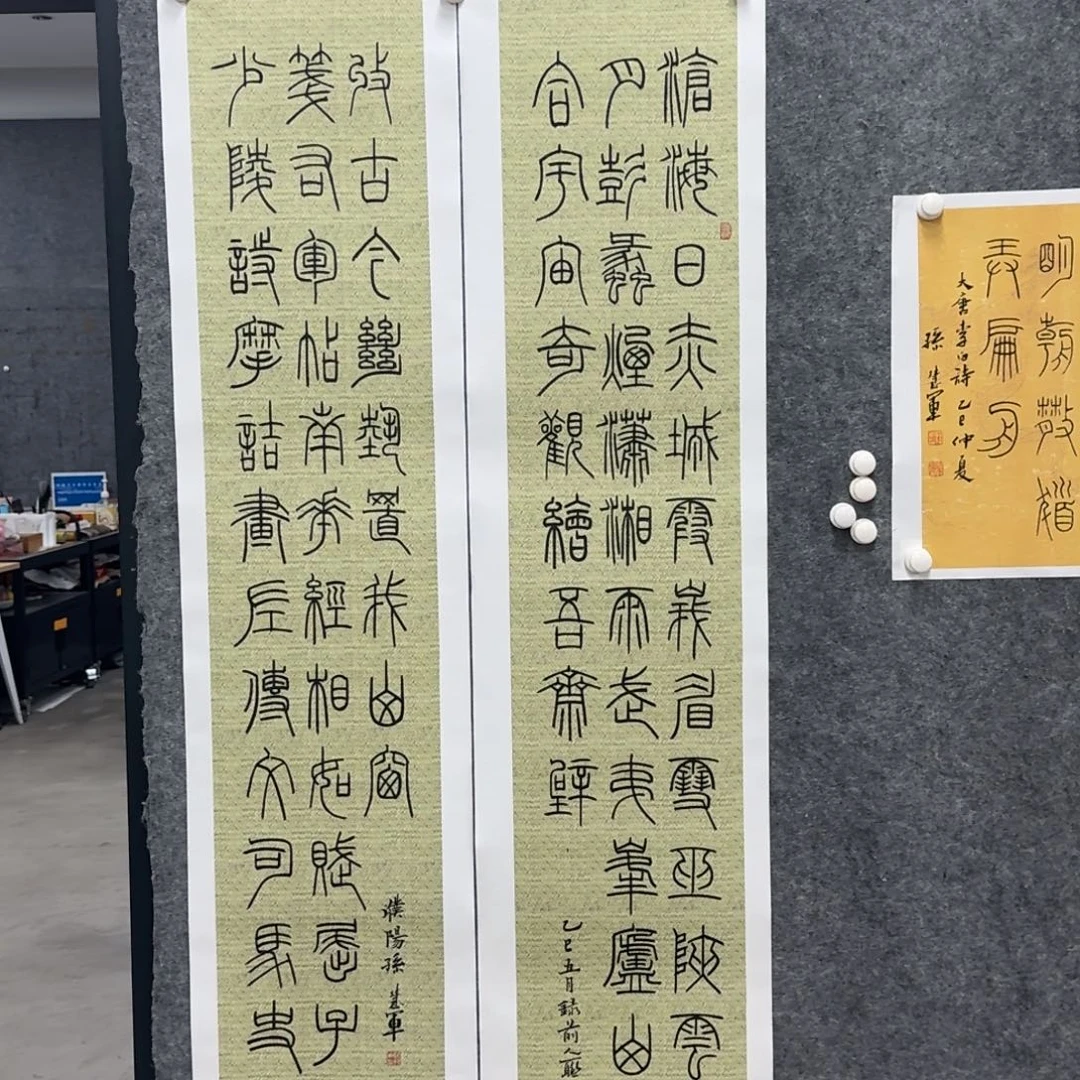 滄海日赤城霞峩眉雪巫陝雲
月彭蠡煙瀟湘雨武夷峯廬山
合宇宙奇觀繪吾齋壁
乙巳五月錄前人聯
少陵詩摩詰畫左傳文司馬史
箋右軍帖南華經相如賦屈子
收古今絕藝置我山窗
濮陽孫軍
明朝散髮
弄扁舟
大唐李白詩乙巳仲夏
孫軍